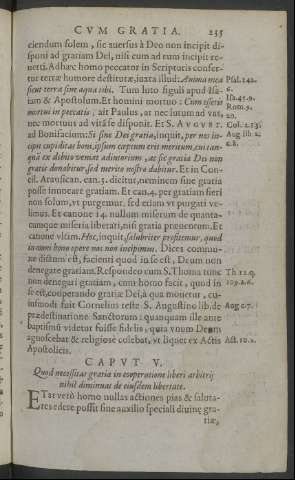 CVM GRATIA. 235
ciendum solem, sic auersus à Deo non incipit di-
sponi ad gratiam Dei, nisi cum ad eum incipit re-
uerti. Adhæc homo peccator in Scripturis confer-
tur terræ humore destitutæ, iuxta illud: Anima mea Psal. 142.
sicut terra sine aqua tibi. Tum luto figuli apud Isa- 6.
iam & Apostolum. Et homini mortuo: Cum essetis Isa. 45. 9.
mortui in peccatis; ait Paulus, at nec lutum ad vas, Rom. 9. 20.
nec mortuus ad vitã se disponit. Et S. AVGVST. Col. 2. 13.
ad Bonifacium: Si sine Dei gratia, inquit, per nos in- Aug. lib. 2.
cipit cupiditas boni, ipsum cœptum erit meritum, cui tan- c. 8.
quã ex debito veniat adiutorium, ac sic gratia Dei non
gratis donabitur, sed merito nostro dabitur. Et in Con-
cil. Arausican. can. 3. dicitur, neminem sine gratia
posse inuocare gratiam. Et can. 4. per gratiam fieri
non solum, vt purgemur, sed etiam vt purgati ve-
limus. Et canone 14. nullum miserum de quanta-
cumque miseria liberari, nisi gratia præuenerit. Et
canone vltim. Hoc, inquit, salubriter profitemur, quod
in omni bono opere nos non incipimus. Dices commu-
ne dictum est, facienti quod in se est, Deum non
denegare gratiam. Respondeo cum S. Thoma tunc Th. 12. q.
non denegari gratiam, cum homo facit, quod in 109. 2. 6.
se est, cooperando gratiæ Dei, à qua mouetur, cu-
iusmodi fuit Cornelius teste S. Augustino lib. de Aug. c. 7.
prædestinatione Sanctorum: quanquam ille ante
baptismũ videtur fuisse fidelis, quia vnum Deum
agnoscebat & religiosè colebat, vt liquet ex Actis Act. 10. 2.
Apostolicis.
CAPVT V.
Quod necessitas gratiæ in cooperatione liberi arbitrij
nihil diminuat de eiusdem libertate.
ET at verò homo nullas actiones pias & saluta-
res edere possit sine auxilio speciali diuinę gra-
tiæ,